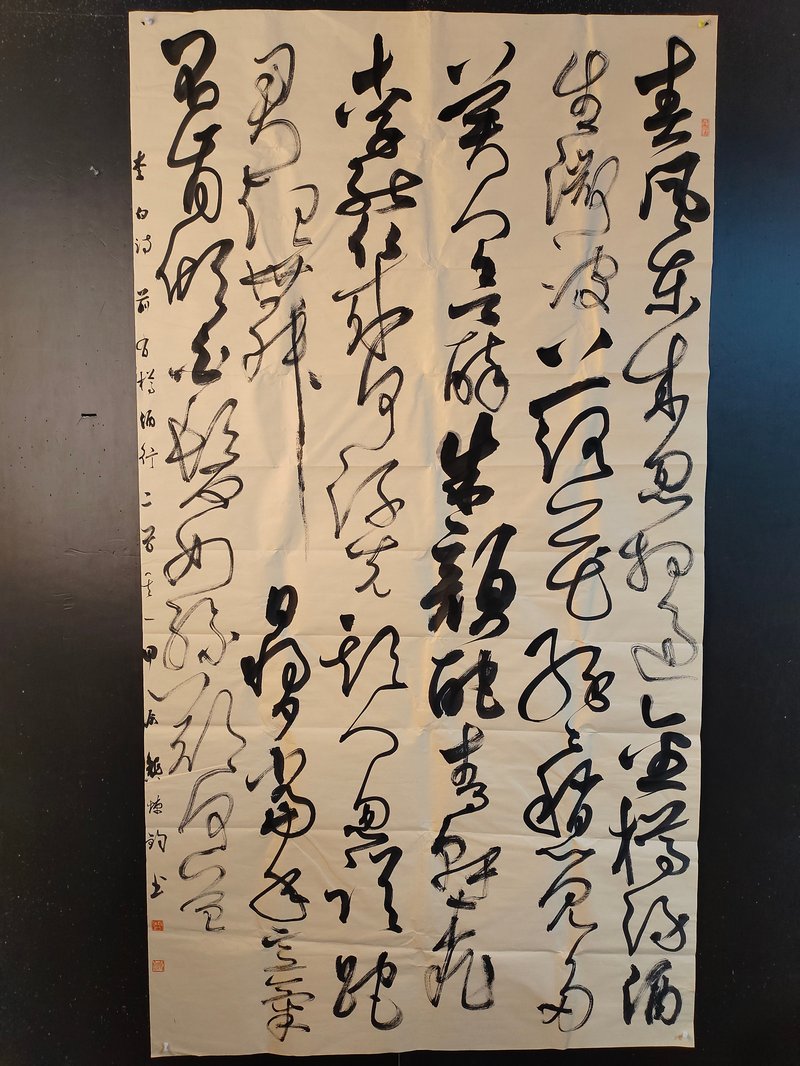 春風東來忽相過金樽淥酒
生微波落花紛紛稍覺多
美人欲醉朱顏酡青軒桃
李能幾何流光欺人忽蹉跎
君起舞日西夕當年意氣
不肯傾白髮如絲歎何益
李白詩前有樽酒行二首其一甲辰熊鈞書